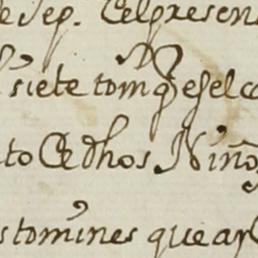 de Sep. Celpresen
siete tom̃ q̃ es el co
to Cedhos Niño
stomines que a